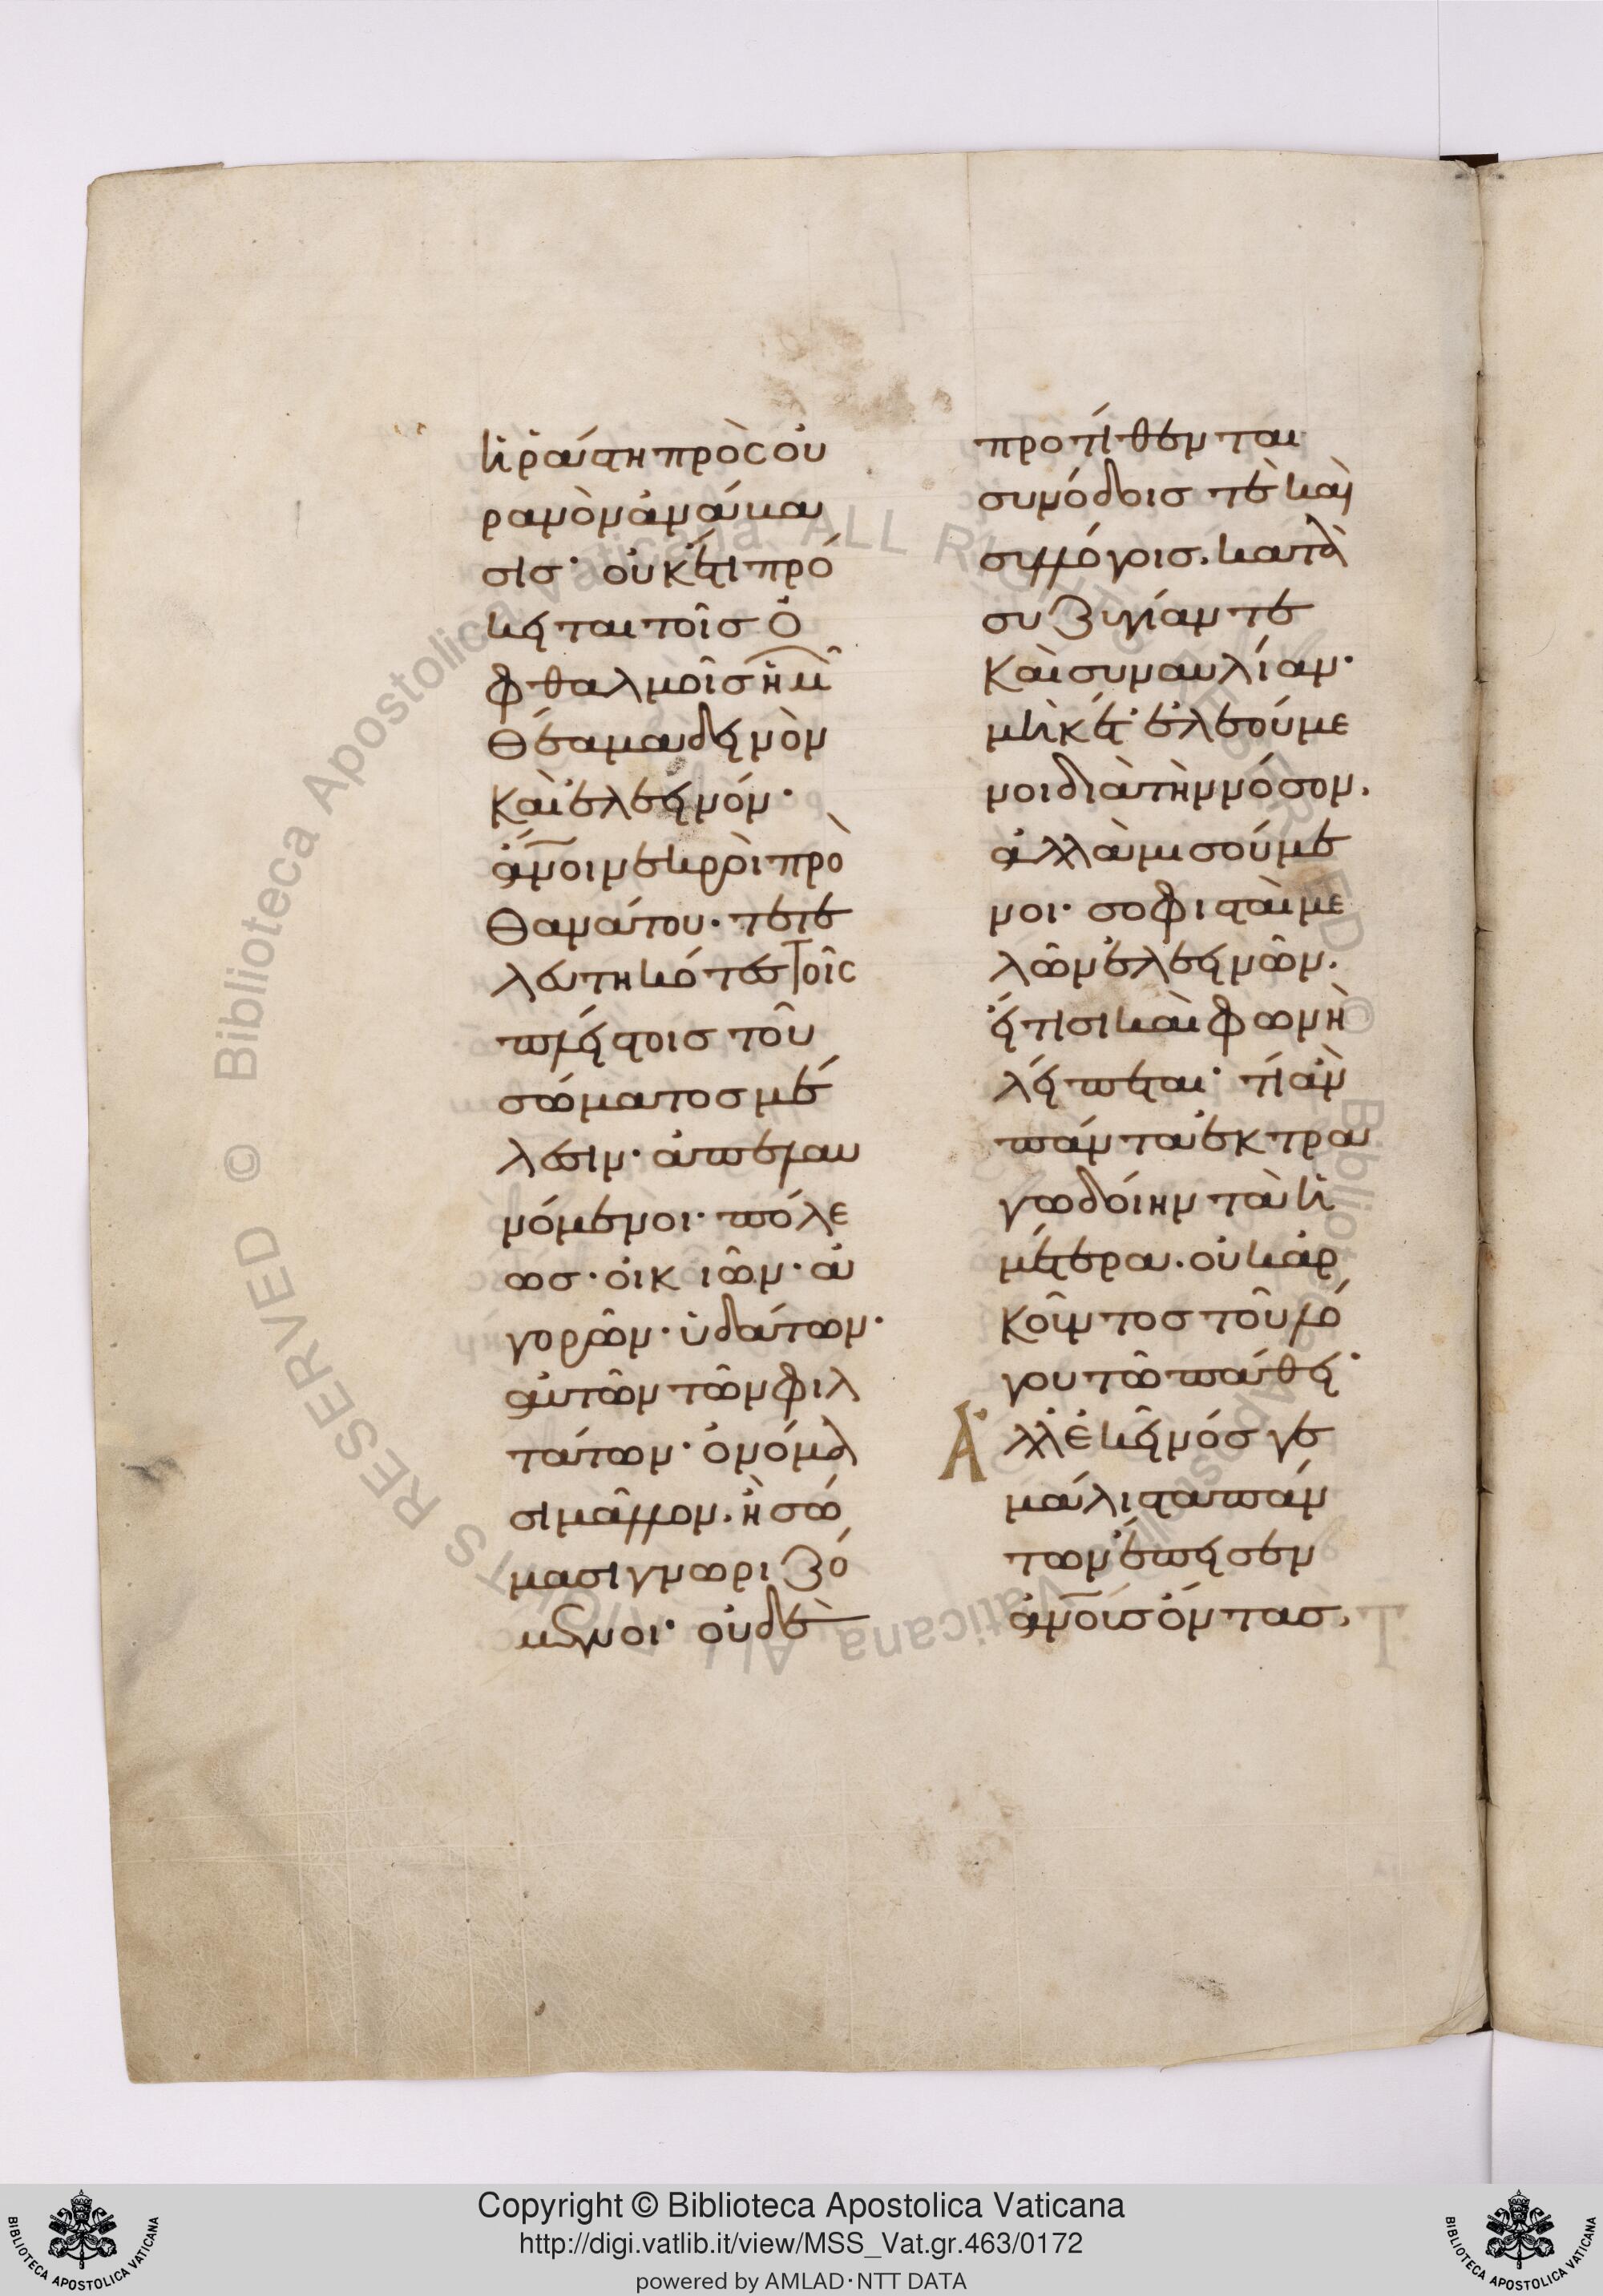 κρατίστη πρὸς οὐ
ρανὸν ἀνάβα
σις· οὐκέτι πρό
κειται τοῖς ὀ
φθαλμοῖς ἡμῶν
θέαμα δεινὸν
καὶ ἐλεεινόν·
ἄνοι νεκροὶ πρὸ
θανάτου· τετε
λευτηκότες τοῖς
πλείστοις τοῦ
σώματος μέ
λεσιν· ἀπελαυ
νόμενοι· πόλε
ως· οἰκιῶν· ἀ
γορῶν· ὑδάτων·
αὐτῶν τῶν φιλ
τάτων· ὀνόμα
σι μᾶλλον. ἢ σώ
μασι γνωριζό
μενοι· οὐδὲ
προτίθενται
συνόδοις τὲ καὶ
συλλόγοις. κατὰ
συζυγίαν τε
καὶ συναυλίαν·
μηκέτ' ἐλεούμε
νοι διὰ τὴν νόσον.
ἀλλὰ μισούμε
νοι· σοφισταὶ με
λῶν ἐλεεινῶν.
εἴ τισι καὶ φωνὴ
λείπεται· τί ἂν
πάντα ἐκτρα
γωδοίην τὰ ἡ
μέτερα. οὐκ ἀρ
κοῦντος τοῦ λό
γου τῶ πάθει·
Ἀλλ' ἐκεῖνός γε
μάλιστα πάν
των ἔπεισεν
ἄνους ὄντας.
Copyright © Biblioteca Apostolica Vaticana
http://digi.vatlib.it/view/MSS_Vat.gr.463/0172
powered by AMLAD·NTT DATA
BIBLIOTECA APOSTOLICA VATICANA
BIBLIOTECA APOSTOLICA VATICANA